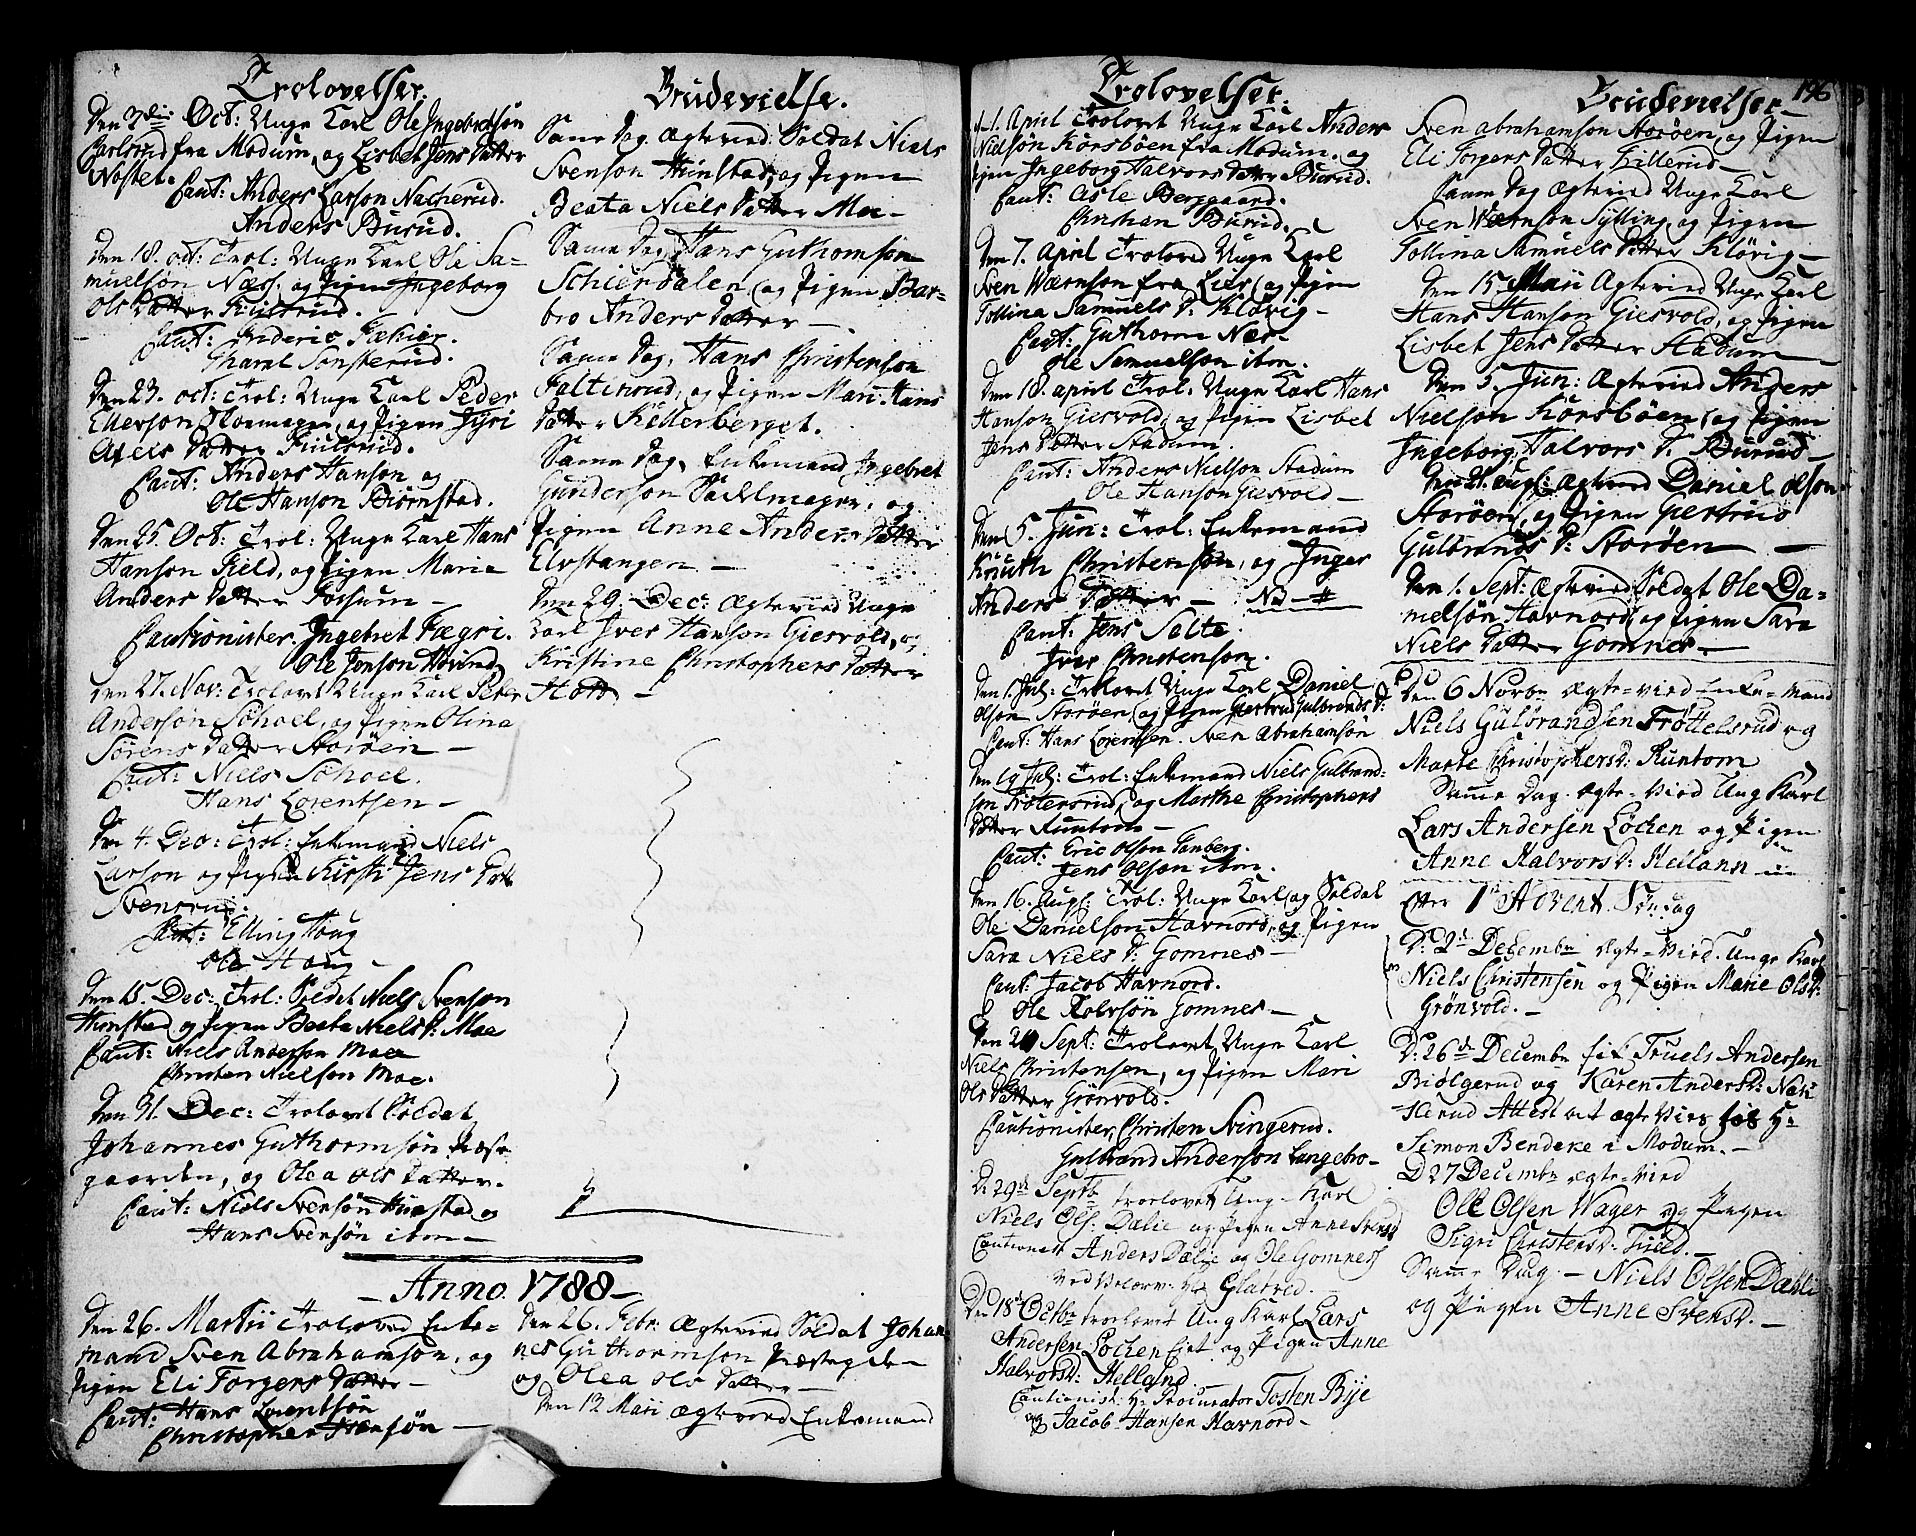 Trolovelser.
Den 7de Oct: Unge Karl Ole Ingebretsön
Carlsrud fra Modum, og Lisbet Jens Datter
Nöstel.
Caut: Anders Larson Nacherud.
Anders Burud.
Den 18. oct: Trol: Unge Karl Ole Sa-
muelsön Næss, og Pigen Ingeborg
Ols Datter
Caut: Frideric
Den 23. oct: Trol: Unge Karl Peder
Ellerson og Pigen Jÿri
Axels Datter
Caut: Anders Hanson og
Ole Hanson Biörnstad.
Den 25. Oct: Trol: Unge Karl Hans
Hanson Field, og Pigen Maria
Anders Datter Fossum -
Cautionister. Ingebret Fægri.
Ole Jonson Hovind
Den 27. Nov: Trolovet Unge Karl Peter
Andersön Söhoel, og Pigen Olina
Sörens Datter Storöen -
Caut: Niels Söhoel.
Hans Lorentsen -
Den 4. Dec: Trol: Enkemand Niels
Larson og Pigen Kirsti Jens Datt:
Svensrud.
Caut: Elling Houg
Ole Houg -
Den 15. Dec: Trol: Soldat Niels Svenson
Hunstad og Pigen Beata Niels D: Moe
Caut: Niels Anderson Moe
Christen Nielson Moe.
Den 31. Dec: Trolovet Soldat
Johannes Guthormsön Præste
gaarden, og Olea Ols Datter.
Caut: Niels Svensön Hunstad og
Hans Svensön ibm -
Brudevielse.
Samme Dag Ægtevied Soldat Niels
Svenson Hunstad, og Pigen
Beata Niels Datter Moe -
Samme Dag, Hans Guthomson
Schierdalen, og Pigen Bar-
bro Anders Datter -
Samme Dag, Hans Christenson
Faltinrud, og Pigen Mari Hans
Datter Kitterberget.
Samme Dag, Enkemand Ingebret
Gunderson Sadelmager, og
Pigen Anne Anders Datter
Elvstangen -
Den 29. Dec: Ægtevied Unge
Karl Iver Hanson Giesvold, og
Kristine Christophers Datter
Hott -
- Anno. 1788 -
Den 26. Martii Troloved Enke-
mand Sven Abrahamson, og
Pigen Eli Torgers Datter -
Caut: Hans Lorentsön
Christopher Ivensön -
Den 26. Febr: Ægtevied Soldat Johan
nes Guthormson Præstegden
og Olea Ols Datter -
Den 12 Maii Ægtevied Enkemand
Trolovelser.
d. 1. April Trolovet Unge Karl Anders
Nielsön Korsböen fra Modum, og
Pigen Ingeborg Halvors Datter Burud.
Caut: Asle Berggaard.
Christian Burud.
Den 7. April Trolovet Unge Karl
Sven Wærnson fra Lier, og Pigen
Tollina Samuels D: Klövig -
Caut: Guthorm Næs
Ole Samuelson ibm.
Den 18. april Trol: Unge Karl Hans
Hanson Giesvold, og Pigen Lisbet
Jens Datter Stadum.
Caut: Anders Nielson Stadum
Ole Hanson Giesvold -
Den 5. Jun: Trol: Enkemand
Knuth Christenson, og Inger
Anders Datter - NB #
Caut: Jens Solte.
Iver Christenson.
Den 1. Jul: Trolovet Unge Karl Daniel
Olson Storöen, og Pigen Giertrud Gulbrands D:
Caut: Hans Lorentsen. Sven Abrahamsön
Den 19 Jul: Trol: Enkemand Niels Gulbrand-
sen Trötelsrud, og Marthe Christophers
Datter Runtom -
Caut: Eric Olson Tanberg.
Jens Olson ibm.
Den 16. Aug: Trol: Unge Karl og Soldat
Ole Danielson Havnord, og Pigen
Sara Niels D: Gomnes -
Caut: Jacob Havnord.
Ole Rolvsön Gomnes -
Den 20 Sept: Trolovet Unge Karl
Niels Christensen, og Pigen Mari
Ols Datter Grönvold.
Cautionister, Christen Svingerud.
Gulbrand Anderson Langebro -
D: 29de Septb troelovet Ung Karl
Niels Ols: Dælie og Pigen Anne Svensd
Cautionist Anders Dælie og Ole Gomness
Den 18de Octbr troelovet Ung Karl Lars
Andersen Löchen og Pigen Anne
Halvorsd: Helland -
Cautionist: Hr Procurator Tosten Bye
og Jacob Hansen Havnord -
196
Brudevielser
Sven abrahamson Storöen, og Pigen
Eli Torgers Datter Tillerud -
Samme Dag Ægtevied Unge Karl
Sven Wærnson Sylling, og Pigen
Tollina Samuels Datter Klövig -
Den 15. Maii Ægtevied Unge Karl
Hans Hanson Giesvold, og Pigen
Lisbet Jens Datter Stadum
Den 5. Jun: Ægtevied Anders
Nielson Korsböen, og Pigen
Ingeborg Halvors D: Burud -
Den 21. Aug: Ægtevied Daniel Olson
Storöen, og Pigen Giertrud
Gulbrands D: Storöen -
Den 1. Sept: Ægtevied Soldat Ole Da-
nielsön Havnord, og Pigen Sara
Niels Datter Gomnes -
Den 6 Novbr ægte-vied Enke-Mand
Niels Gulbrandsen Tröttelsrud og
Marte Christophersd: Runtom
Samme Dag ægte-vied Ung Karl
Lars Andersen Löchen og Pigen
Anne Halvorsd: Hellann
Efter 1ste Advent Söndag
D: 2de Decembr ægte-vied Unge Karl
Niels Christensen og Pigen Marie Olsd:
Grönvold. -
D: 26de Decembr fik Truels Andersen
Biölgerud og Karen Andersd: Nak
kerud Attest at ægte vies hos Hr
Simon Bendeke i Modum. -
D 27 Decembr ægte-vied
Ole Olsen Wager og Pigen
Sigri Christensd: Tueld. -
Samme Dag - Niels Olsen Dæhli
og Pigen Anne Svensd. -